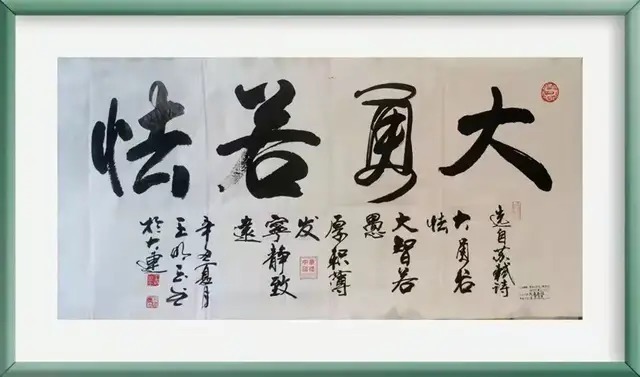 大勇若怯
选自苏轼诗
大勇若
怯
大智若
愚
厚积薄
发
寧静致
遠
辛丑夏月
於大連